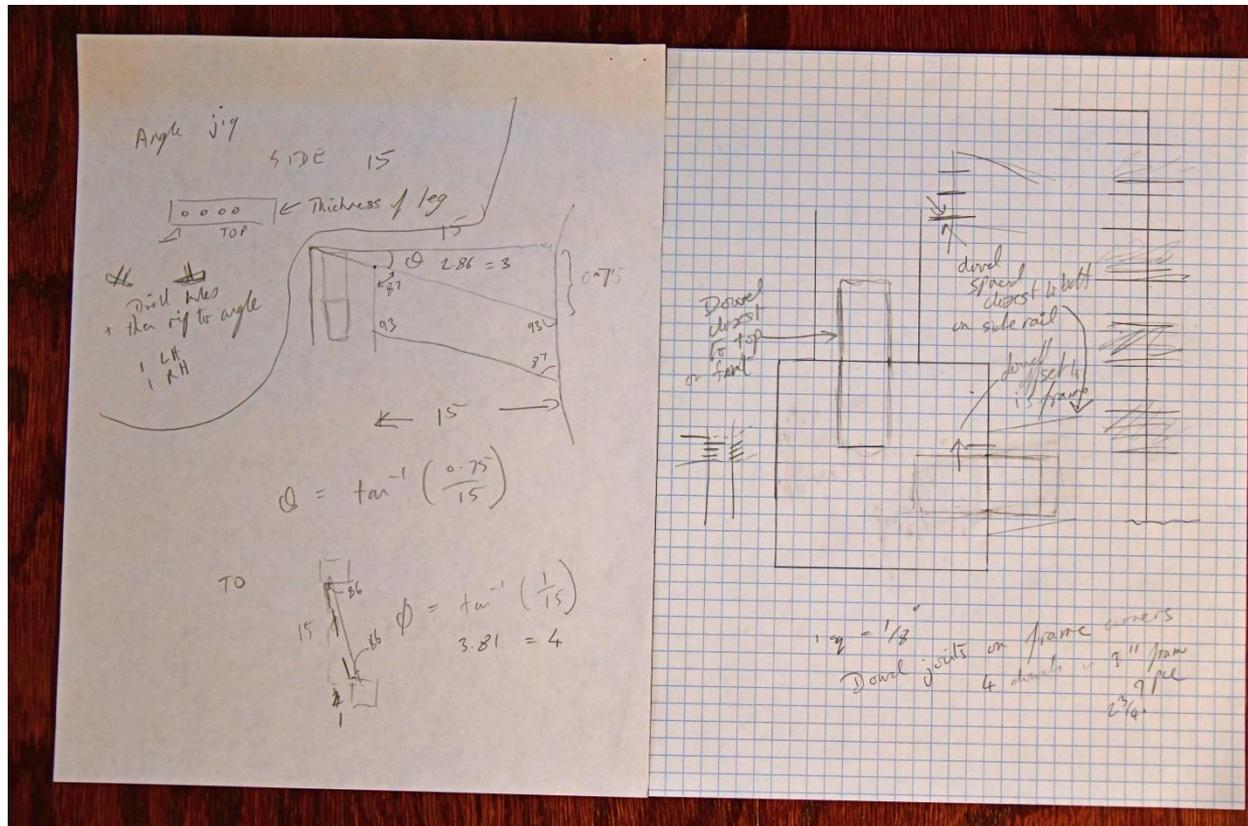 Angle jig
SIDE 15
← Thickness of leg
TOP
Drill holes
+ then rip to angle
1 LH
1 RH
15
θ 2.86 = 3
0.75
87
93
93
87
← 15 →
θ = tan⁻¹ (0.75/15)
TO
86
15
86
1
φ = tan⁻¹ (1/15)
3.81 = 4
dowel
spaced
closest to bolt
on side rail
Dowel
closest
to top
on front
dowel
offset to
frame
1 sq = 1/8"
Dowel joints on frame corners
4 dowels 3" frame
2 3/4